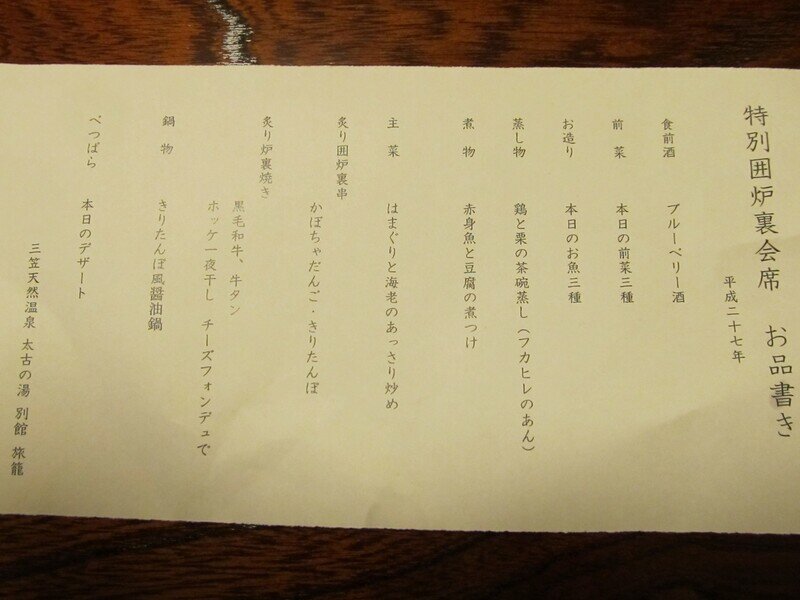 特別囲炉裏会席 お品書き
平成二十七年
食前酒 ブルーベリー酒
前菜 本日の前菜三種
お造り 本日のお魚三種
蒸し物 鶏と栗の茶碗蒸し(フカヒレのあん)
煮物 赤身魚と豆腐の煮つけ
主菜 はまぐりと海老のあっさり炒め
炙り囲炉裏串
かぼちゃだんご・きりたんぽ
炙り炉裏焼き
黒毛和牛、牛タン
ホッケ一夜干し チーズフォンデュで
鍋物 きりたんぽ風醤油鍋
べつばら 本日のデザート
三笠天然温泉 太古の湯 別館 旅籠